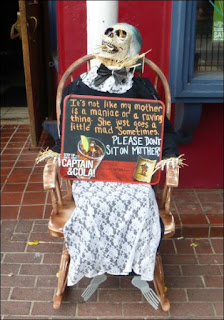 It's not like my mother
is a maniac or a raving
thing. She just goes a
little mad sometimes.
PLEASE DON'T
SIT ON MOTHER
CAPTAIN
& COLA!